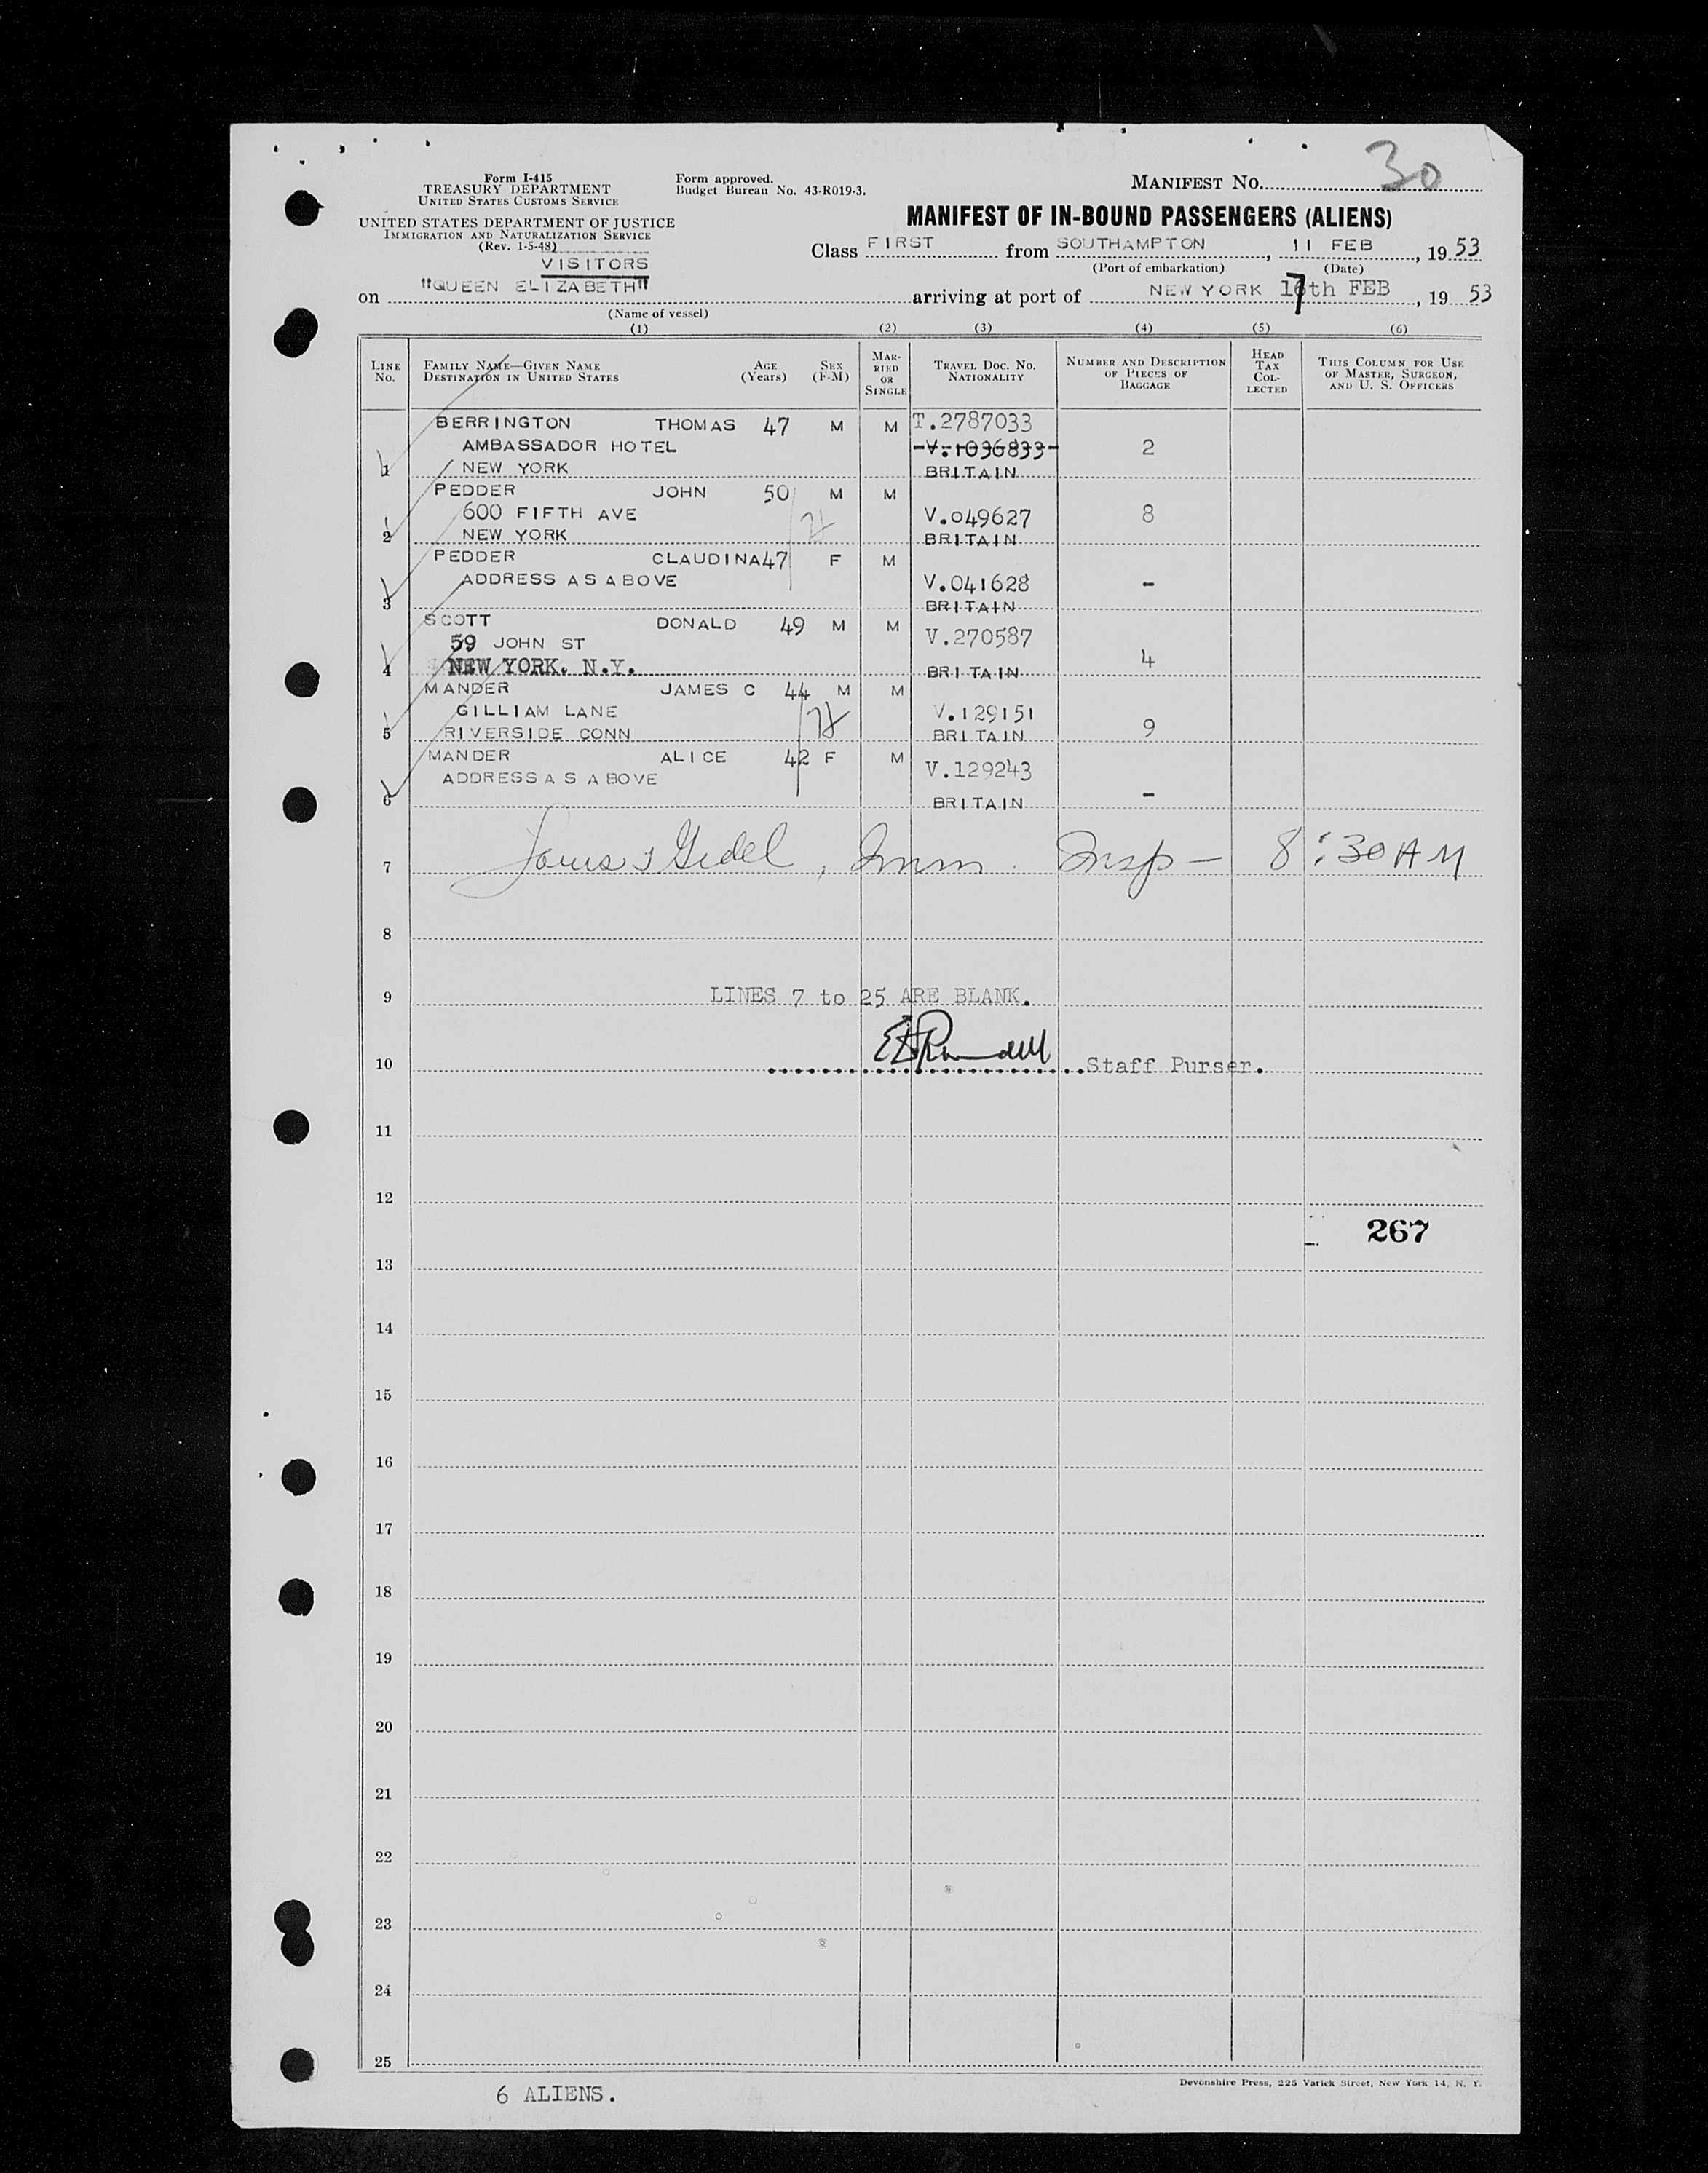 30
Form I-415
TREASURY DEPARTMENT
UNITED STATES CUSTOMS SERVICE
UNITED STATES DEPARTMENT OF JUSTICE
IMMIGRATION AND NATURALIZATION SERVICE
(Rev. 1-5-48)
Form approved.
Budget Bureau No. 43-R019-3.
MANIFEST NO.
MANIFEST OF IN-BOUND PASSENGERS (ALIENS)
Class FIRST from SOUTHAMPTON, 11 FEB, 19 53
(Port of embarkation) (Date)
VISITORS
on "QUEEN ELIZABETH" arriving at port of NEW YORK 17th FEB, 19 53
(Name of vessel)
(1) (2) (3) (4) (5) (6)
LINE NO.
FAMILY NAME—GIVEN NAME
DESTINATION IN UNITED STATES
AGE (Years)
SEX (F-M)
MARRIED OR SINGLE
TRAVEL DOC. NO. NATIONALITY
NUMBER AND DESCRIPTION OF PIECES OF BAGGAGE
HEAD TAX COLLECTED
THIS COLUMN FOR USE OF MASTER, SURGEON, AND U. S. OFFICERS
BERRINGTON THOMAS 47 M M T.2787033
AMBASSADOR HOTEL V.1036833 2
1 NEW YORK BRITAIN
PEDDER JOHN 50 M M
600 FIFTH AVE V.049627 8
2 NEW YORK BRITAIN
PEDDER CLAUDINA 47 F M
ADDRESS AS ABOVE V.041628 -
3 BRITAIN
SCOTT DONALD 49 M M V.270587
59 JOHN ST 4
4 NEW YORK. N.Y. BRITAIN
MANDER JAMES C 44 M M
GILLIAM LANE V.129151 9
5 RIVERSIDE CONN BRITAIN
MANDER ALICE 42 F M V.129243
ADDRESS AS ABOVE -
6 BRITAIN
7 Imm. Insp — 8:30 AM
8
9 LINES 7 to 25 ARE BLANK.
10 Staff Purser.
11
12
267
13
14
15
16
17
18
19
20
21
22
23
24
25
Devonshire Press, 225 Varick Street, New York 14, N. Y.
6 ALIENS.